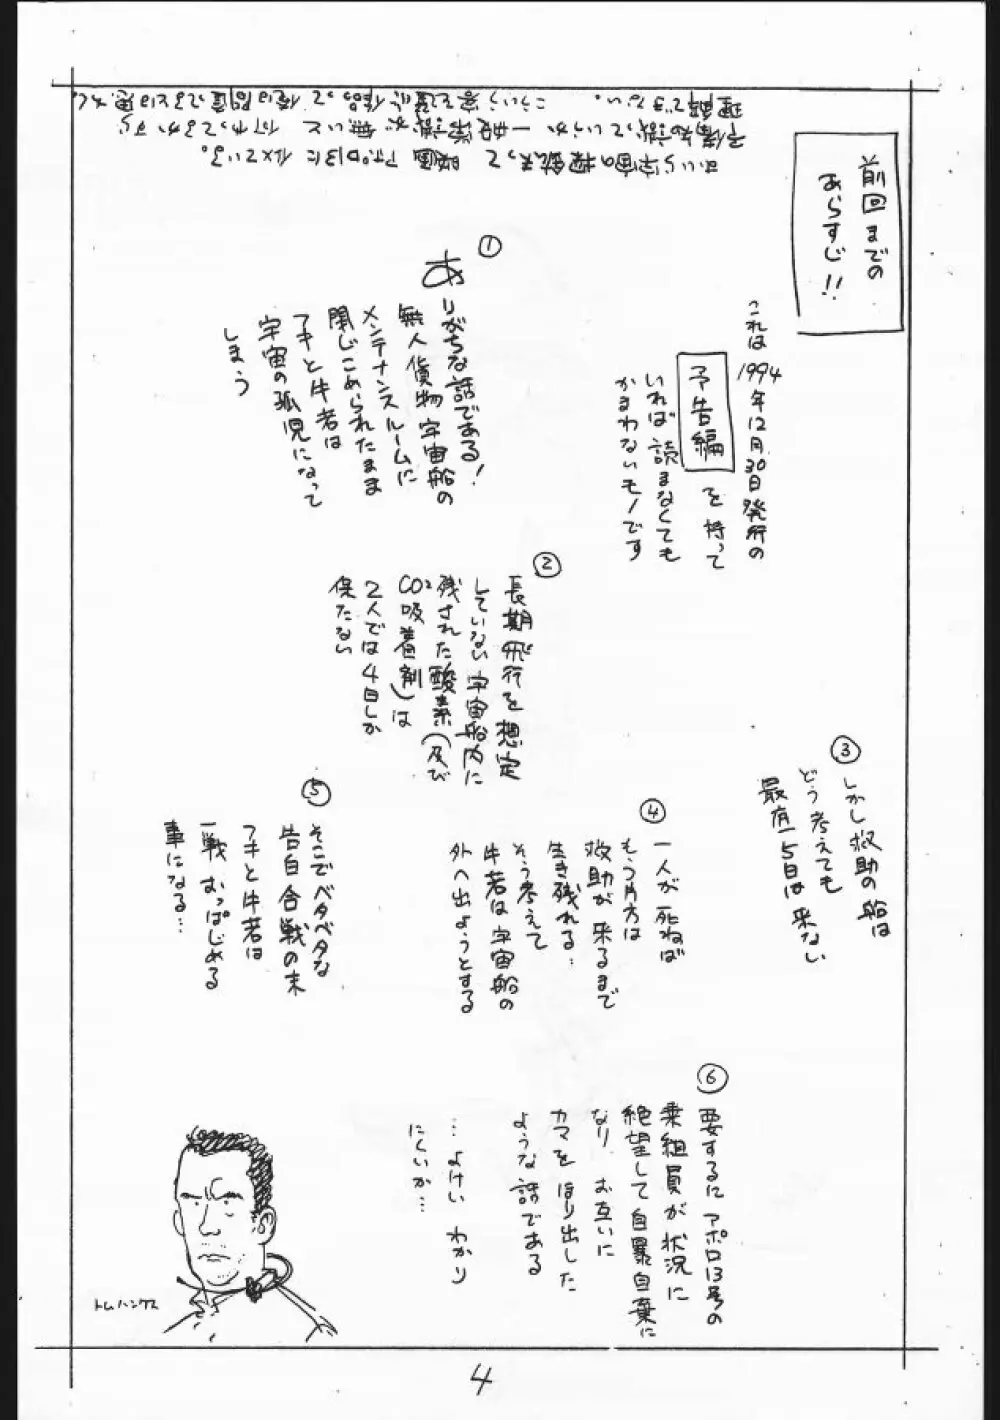 前回までの
あらすじ!!
これは1994年12月30日発行の
予告編を持って
いれば読まなくても
かまわないモノです
①
ありがちな話である！
無人貨物宇宙船の
メンテナンスルームに
閉じこめられたまま
アキと牛若は
宇宙の孤児になって
しまう
②
長期飛行を想定
していない宇宙船内に
残された酸素（及び
CO²吸着剤）は
2人では4日しか
保たない
③
しかし救助の船は
どう考えても
最有 5日は来ない
④
一人が死ねば
もう片方は
救助が来るまで
生き残れる…
そう考えて
牛若は宇宙船の
外へ出ようとする
⑤
そこでベタベタな
告白合戦の末
アキと牛若は
一戦おっぱじめる
事になる…
⑥
要するにアポロ13号の
乗組員が状況に
絶望して自暴自棄に
なり お互いに
カマをほり出した
ような話である
…よけいわかり
にくいか…
トムハンクス
4